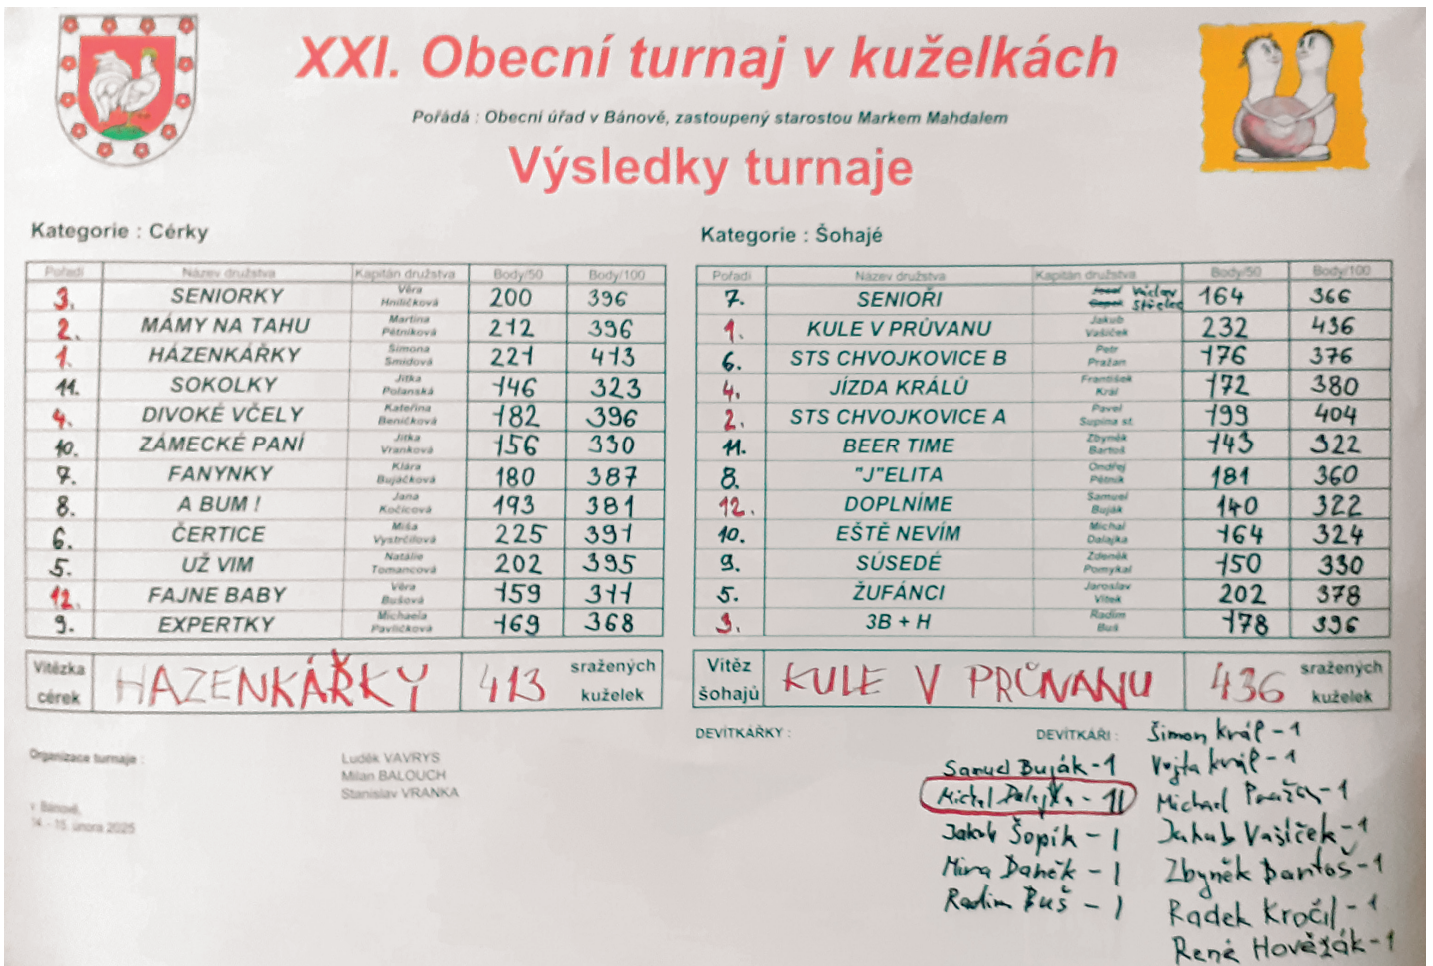 XXI. Obecní turnaj v kuželkách
Pořádá : Obecní úřad v Bánově, zastoupený starostou Markem Mahdalem
Výsledky turnaje
Kategorie : Cérky
Pořadí Název družstva Kapitán družstva Body/50 Body/100
3. SENIORKY Věra Hniličková 200 396
2. MÁMY NA TAHU Martina Pětníková 212 396
1. HÁZENKÁŘKY Šimona Smidová 221 413
11. SOKOLKY Jitka Polanská 146 323
4. DIVOKÉ VČELY Kateřina Beníčková 182 396
10. ZÁMECKÉ PANÍ Jitka Vranková 156 330
7. FANYNKY Klára Bujáčková 180 387
8. A BUM ! Jana Kočicová 193 381
6. ČERTICE Míša Vystrčilová 225 391
5. UŽ VIM Natálie Tomancová 202 395
12. FAJNE BABY Věra Bušová 159 311
9. EXPERTKY Michaela Pavlíčková 169 368
Vítězka cérek HAZENKÁŘKY 413 sražených kuželek
Kategorie : Šohajé
Pořadí Název družstva Kapitán družstva Body/50 Body/100
7. SENIOŘI Václav Střelec 164 366
1. KULE V PRŮVANU Jakub Vašíček 232 436
6. STS CHVOJKOVICE B Petr Pražan 176 376
4. JÍZDA KRÁLŮ František Král 172 380
2. STS CHVOJKOVICE A Pavel Supina st. 199 404
11. BEER TIME Zbyněk Bartoš 143 322
8. "J"ELITA Ondřej Pětník 181 360
12. DOPLNÍME Samuel Buják 140 322
10. EŠTĚ NEVÍM Michal Dalajka 164 324
9. SÚSEDÉ Zdeněk Pomykal 150 330
5. ŽUFÁNCI Jaroslav Vítek 202 378
3. 3B + H Radim Buš 178 396
Vítěz šohajů KULE V PRŮVANU 436 sražených kuželek
Organizace turnaje :
Luděk VAVRYS
Milan BALOUCH
Stanislav VRANKA
v Bánově,
14. - 15. února 2025
DEVÍTKÁŘKY :
DEVÍTKÁŘI :
Samuel Buják - 1
Michal Dalajka - 11
Jakub Šopík - 1
Mira Daněk - 1
Radim Buš - 1
Šimon Král - 1
Vojta Král - 1
Michael Pražan - 1
Jakub Vašíček - 1
Zbyněk Bartoš - 1
Radek Kročil - 1
René Hověžák - 1